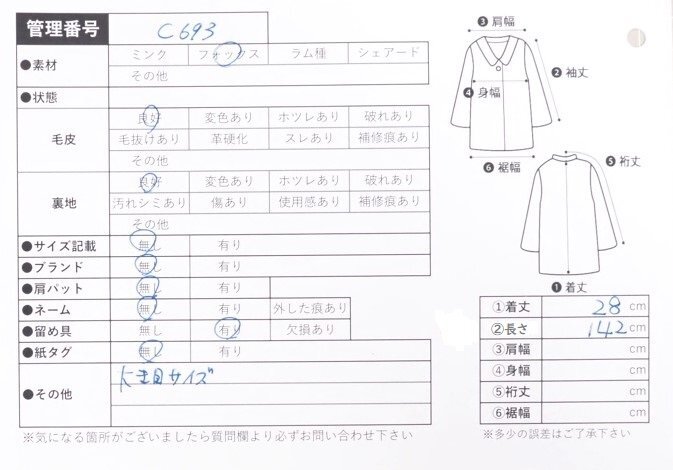 管理番号 C693
●素材 ミンク フォックス ラム種 シェアード
その他
●状態
毛皮 良好 変色あり ホツレあり 破れあり
毛抜けあり 革硬化 スレあり 補修痕あり
その他
裏地 良好 変色あり ホツレあり 破れあり
汚れシミあり 傷あり 使用感あり 補修痕あり
その他
●サイズ記載 無し 有り
●ブランド 無し 有り
●肩パット 無し 有り
●ネーム 無し 有り 外した痕あり
●留め具 無し 有り 欠損あり
●紙タグ 無し 有り
●その他 大き目サイズ
※気になる箇所がございましたら質問欄より必ずお問い合わせ下さい
❸肩幅
❷袖丈
❹身幅
❻裾幅
❺裄丈
❶着丈
①着丈 28 cm
②長さ 142 cm
③肩幅 cm
④身幅 cm
⑤裄丈 cm
⑥裾幅 cm
※多少の誤差はご了承下さい